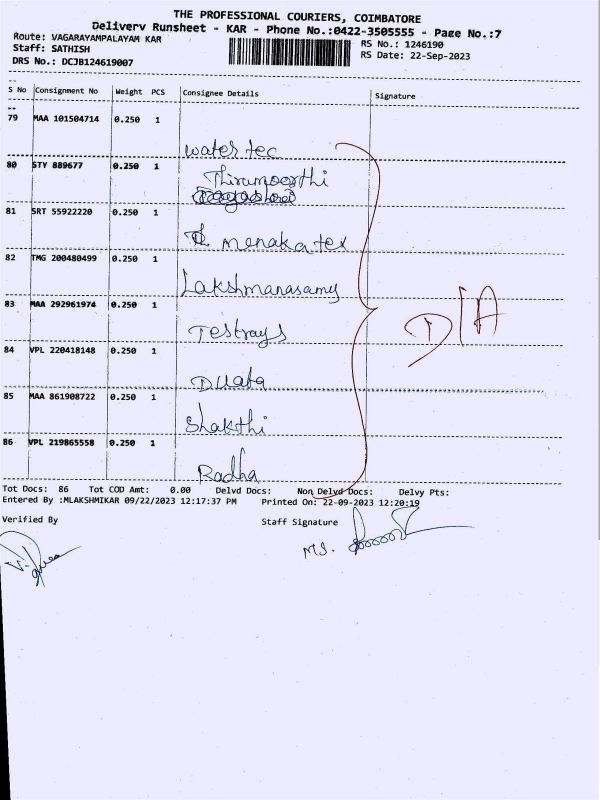 THE PROFESSIONAL COURIERS, COIMBATORE
Delivery Runsheet - KAR - Phone No.:0422-3505555 - Page No.:7
Route: VAGARAYAMPALAYAM KAR
RS No.: 1246190
Staff: SATHISH
RS Date: 22-Sep-2023
DRS No.: DCJB124619007
S No Consignment No Weight PCS Consignee Details Signature
79 MAA 101504714 0.250 1
water tec
80 STY 889677 0.250 1
Thirumoorthi
81 SRT 55922220 0.250 1
menaka tex
82 TMG 200480499 0.250 1
Lakshmanasamy
83 MAA 292961974 0.250 1
Testrays
D/A
84 VPL 220418148 0.250 1
85 MAA 861908722 0.250 1
Shakthi
86 VPL 219865558 0.250 1
Radha
Tot Docs: 86 Tot COD Amt: 0.00 Delvd Docs: Non Delvd Docs: Delvy Pts:
Entered By :MLAKSHMIKAR 09/22/2023 12:17:37 PM Printed On: 22-09-2023 12:20:19
Verified By Staff Signature